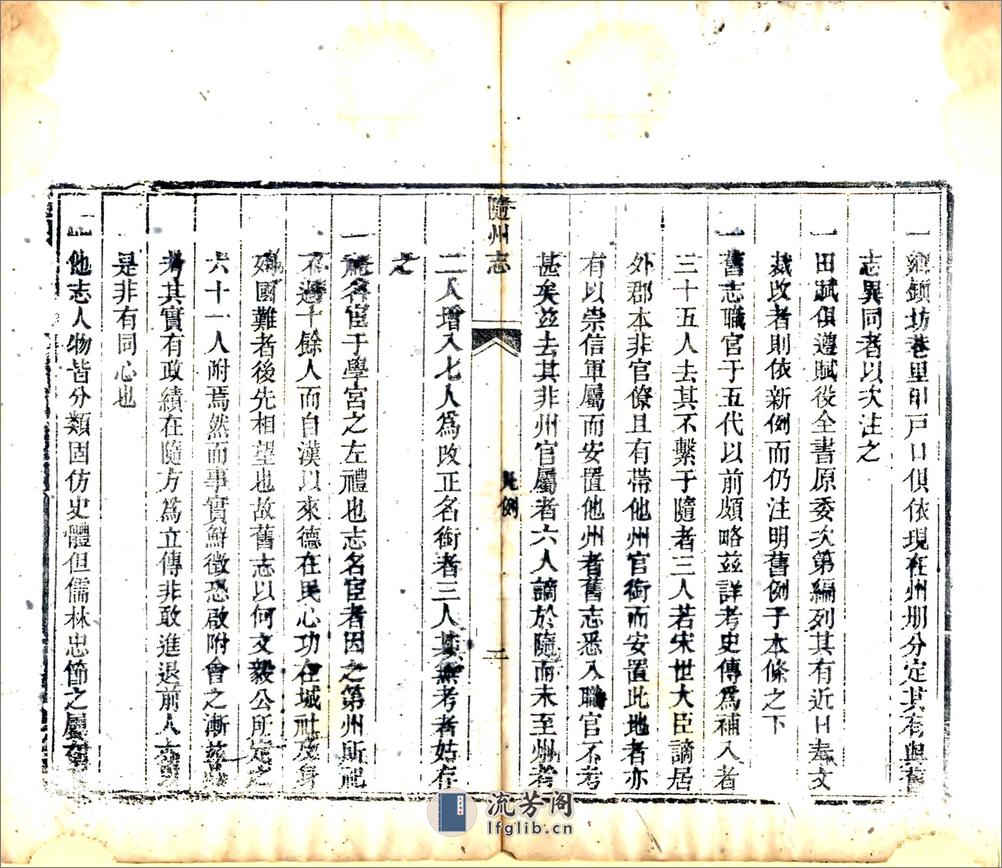 一鄉鎮坊巷里甲戸口俱依現在州册分定其有與舊
志異同者以次注之
一田賦俱遵賦役全書原委次第編列其有近日奉文
裁改者則依新例而仍注明舊例于本條之下
一舊志職官于五代以前頗略茲詳考史傳爲補入者
三十五人去其不繫于隨者三人若宋世大臣謫居
外郡本非官僚且有帶他州官銜而安置此地者亦
有以崇信軍屬而安置他州者舊志悉入職官不考
甚矣茲去其非州官屬者六人謫於隨而未至州者
隨州志
凡例
二
二人增入七人爲改正名銜者三人其無考者姑存
之
一祀名宦于學宮之左禮也志名宦者因之第州所祀
不過十餘人而自漢以來德在民心功在城社及身
殉國難者後先相望也故舊志以何文毅公所定之
六十一人附焉然而事實鮮徵恐啟附會之漸茲
考其實有政績在隨方爲立傳非敢進退前人
是非有同心也
一他志人物皆分類固仿史體但儒林忠節之屬
流芳阁
lfglib.cn